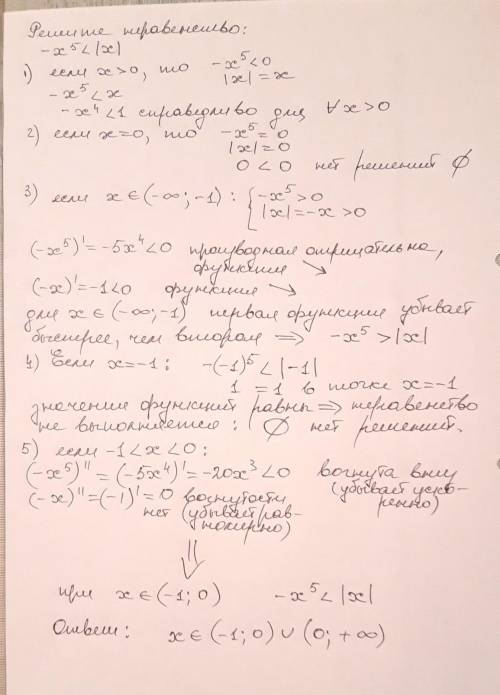 Решите неравенство:
-x⁵ < |x|
1) если x>0, то -x⁵<0
|x| = x
-x⁵ < x
-x⁴ < 1 справедливо для ∀x>0
2) если x=0, то -x⁵ = 0
|x| = 0
0 < 0 нет решений ∅
3) если x ∈ (-∞; -1) : { -x⁵ > 0
|x| = -x > 0
(-x⁵)' = -5x⁴ < 0 производная отрицательна,
функция ↘
(-x)' = -1 < 0 функция ↘
для x ∈ (-∞; -1) первая функция убывает
быстрее, чем вторая ⇒ -x⁵ > |x|
4) Если x = -1 : -(-1)⁵ < |-1|
1 = 1 в точке x = -1
значения функций равны ⇒ неравенство
не выполняется : ∅ нет решений.
5) если -1 < x < 0 :
(-x⁵)'' = (-5x⁴)' = -20x³ < 0 вогнута вниз
(убывает уско-
ренно)
(-x)'' = (-1)' = 0 вогнутости
нет (убывает рав-
номерно)
⇓
при x ∈ (-1; 0) -x⁵ < |x|
Ответ: x ∈ (-1; 0) ∪ (0; +∞)